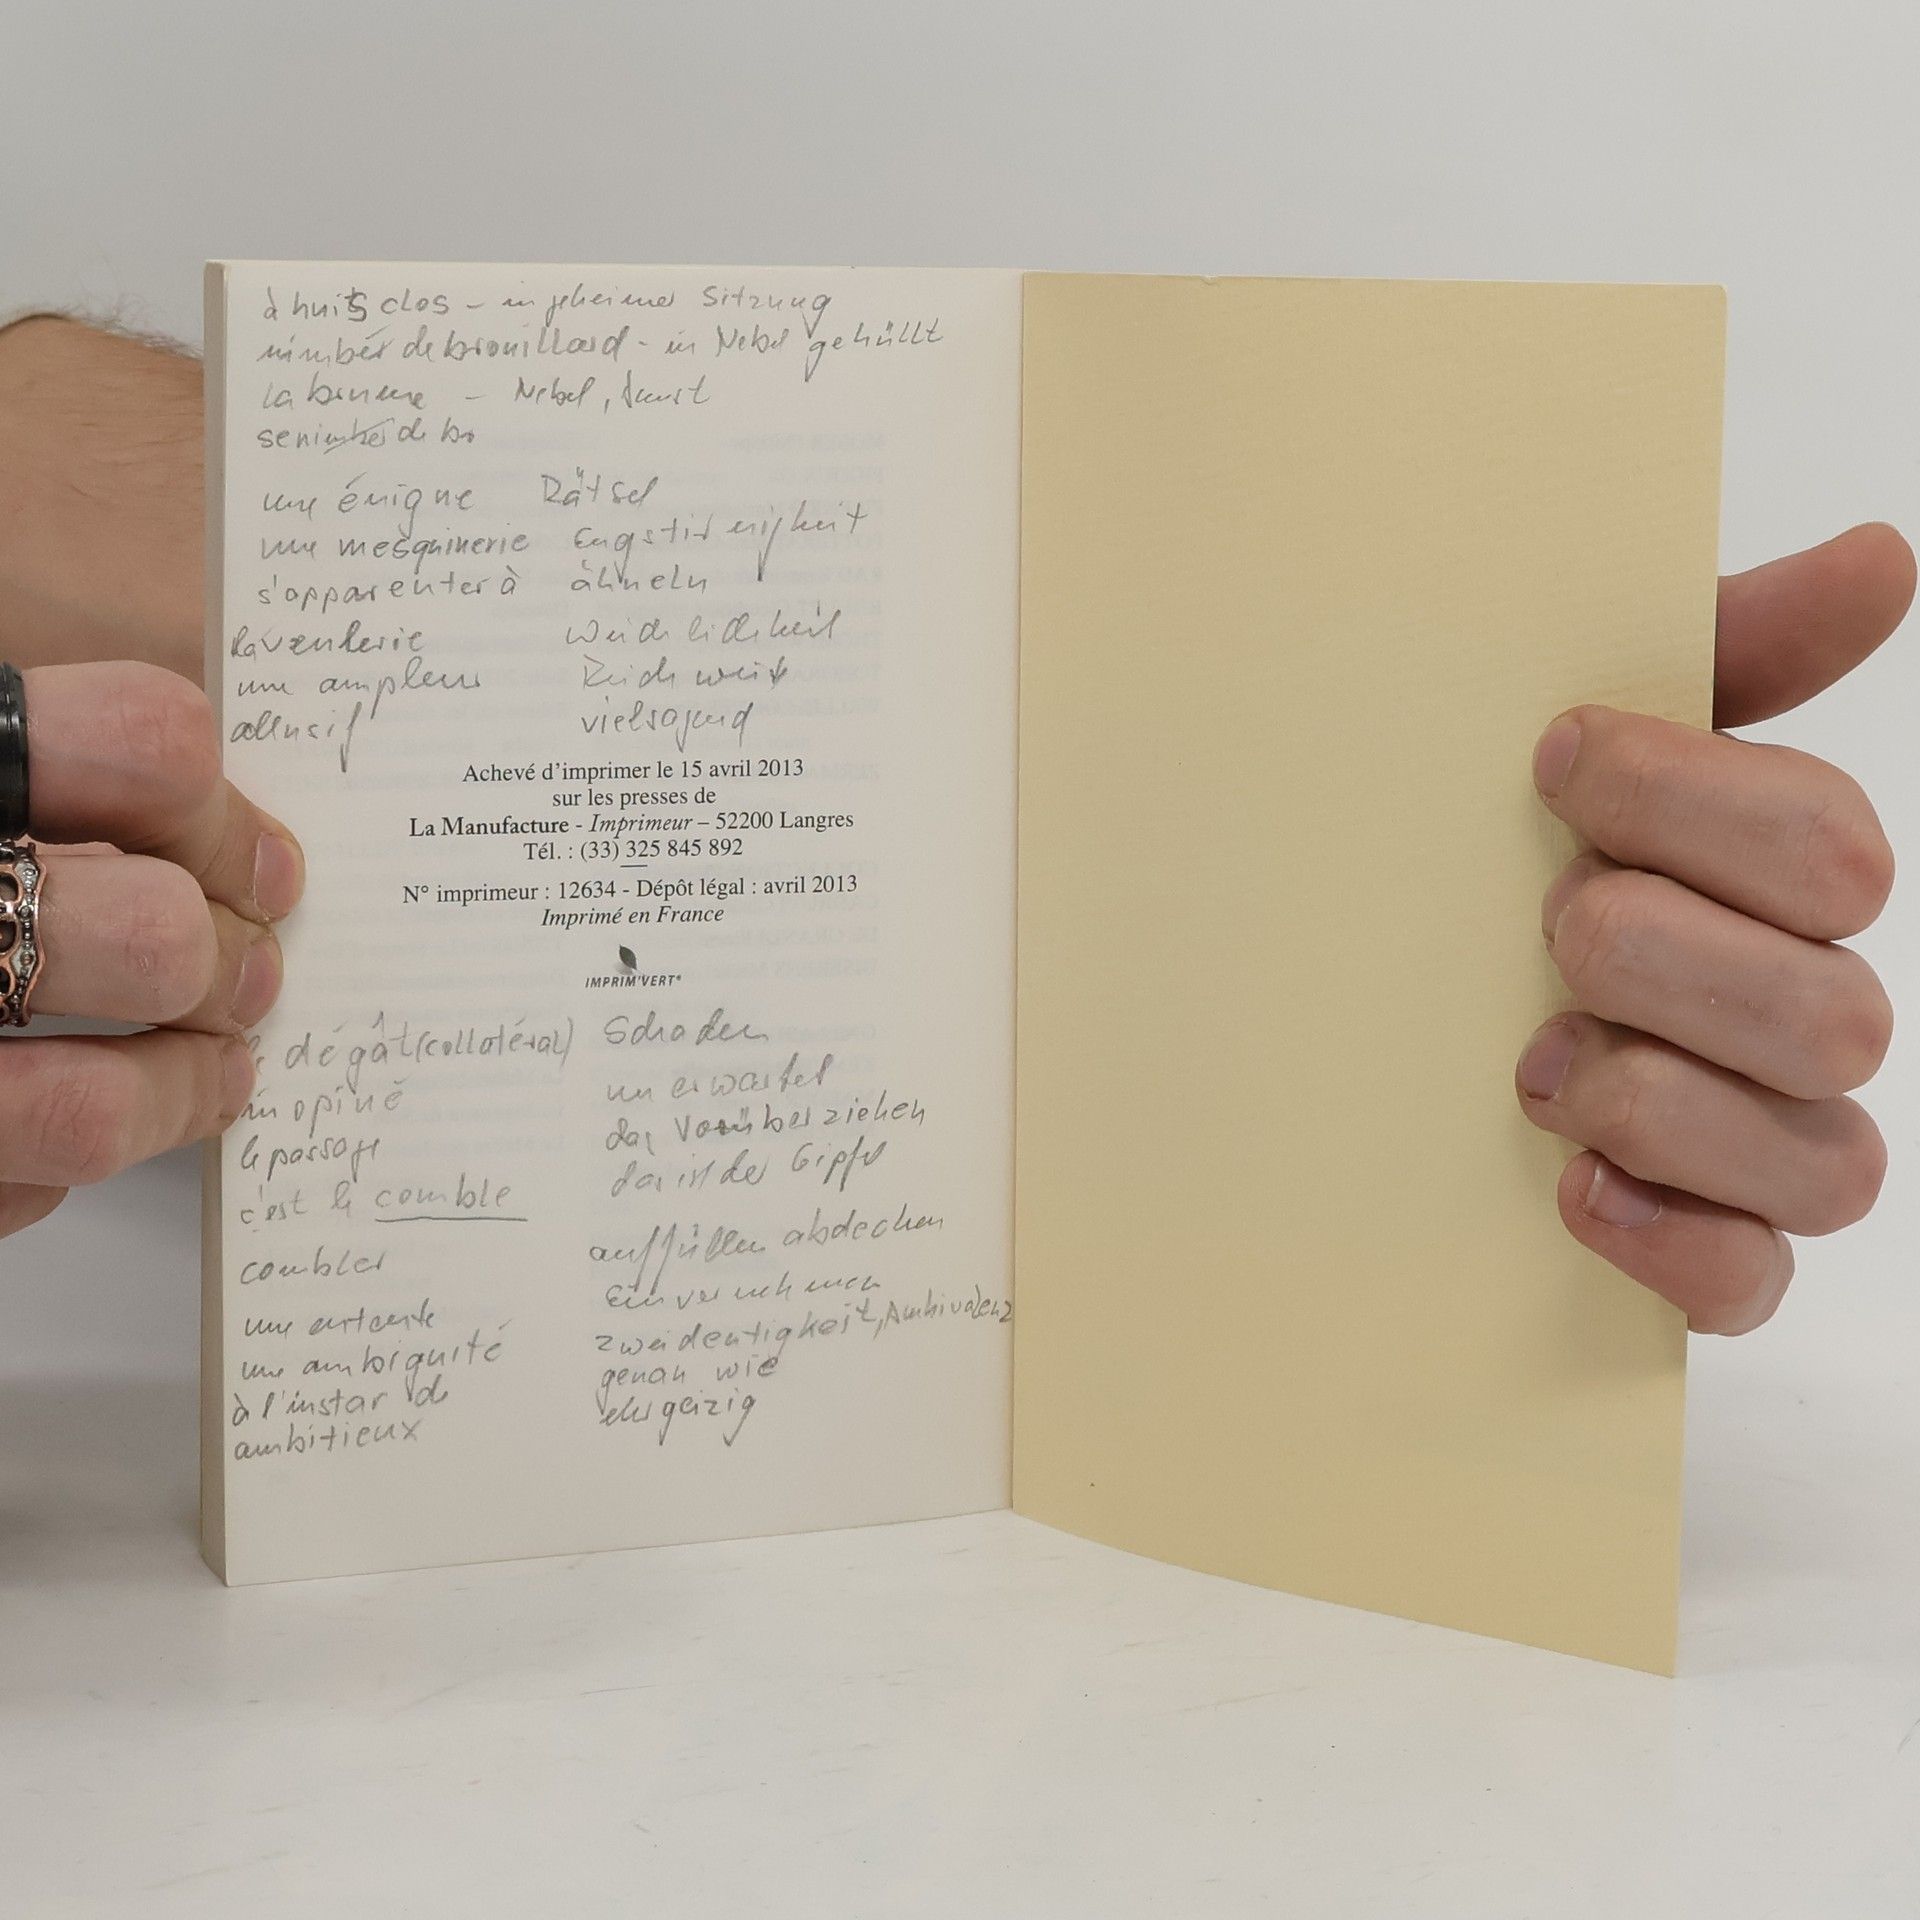 à huits clos - in geheimer Sitzung
nimbér de brouillard - in Nebel gehüllt
la brume - Nebel, Dunst
se nimber de br
une énigne Rätsel
une mesquinerie Engstirnigkeit
s'apparenter à ähneln
la Weichlichkeit
une ampleur Reichweite
allusif vielsagend
Achevé d'imprimer le 15 avril 2013
sur les presses de
La Manufacture - Imprimeur – 52200 Langres
Tél. : (33) 325 845 892
N° imprimeur : 12634 - Dépôt légal : avril 2013
Imprimé en France
IMPRIM'VERT®
dégât (collatéral) Schaden
inopiné unerwartet
le passage das Vorüberziehen
c'est le comble das ist der Gipfel
combler auffüllen abdecken
une entente Einvernehmen
une ambiguité Zweideutigkeit, Ambivalenz
à l'instar de genau wie
ambitieux ehrgeizig